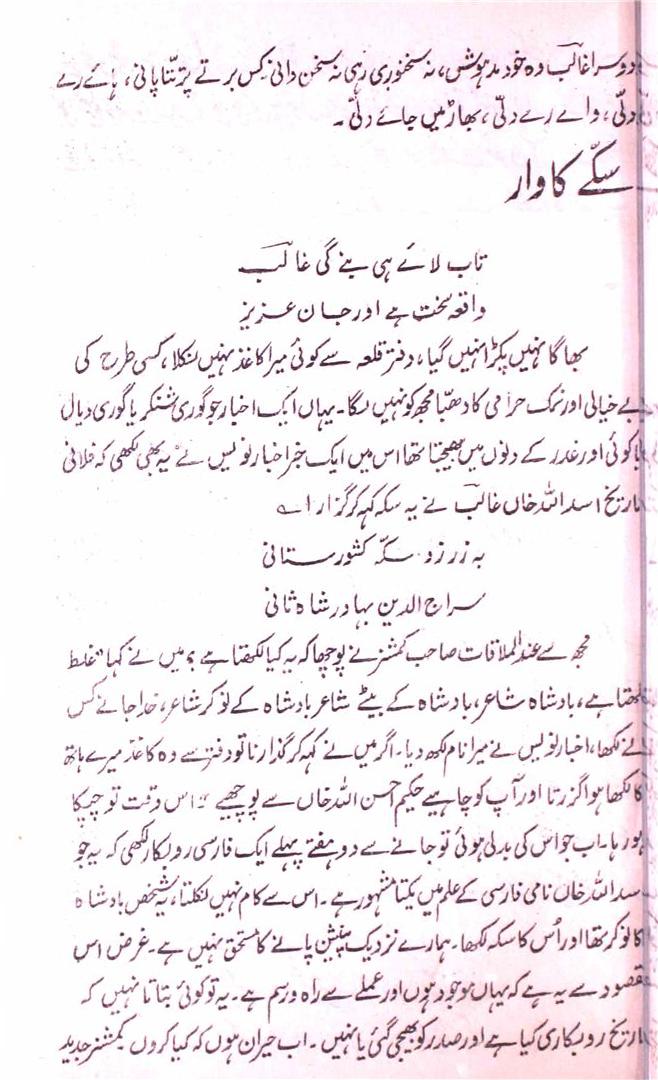 دوسرا غالبؔ وہ خود مدہوش، نہ سخنوری رہی نہ سخن دانی کس برتے پر تتّا پانی، ہائے رے
دلّی، وائے رے دلّی، بھاڑ میں جائے دلّی۔
سکّے کا وار
تاب لائے ہی بنے گی غالبؔ
واقعہ سخت ہے اور جان عزیز
بھاگا نہیں پکڑا نہیں گیا، دفتر قلعہ سے کوئی میرا کاغذ نہیں نکلا، کسی طرح کی
بے خیالی اور نمک حرامی کا دھبّا مجھ کو نہیں لگا۔ یہاں ایک اخبار جو گوری شنکر یا گوری دیال
یا کوئی اور غدر کے دنوں میں بھیجتا تھا اس میں ایک خبر اخبار نویس نے یہ بھی لکھی کہ فلانی
تاریخ اسد اللہ خاں غالبؔ نے یہ سکہ کہہ کر گزارا ؎
بہ زر زد سکہ کشورستانی
سراج الدین بہادر شاہ ثانی
مجھ سے عندالملاقات صاحب کمشنر نے پوچھا کہ یہ کیا لکھتا ہے؟ میں نے کہا "غلط
لکھتا ہے، بادشاہ شاعر، بادشاہ کے بیٹے شاعر بادشاہ کے نوکر شاعر، خدا جانے کس
نے لکھا، اخبار نویس نے میرا نام لکھ دیا۔ اگر میں نے کہہ کر گذارنا تو دفتر سے وہ کاغذ میرے ہاتھ
کا لکھا ہوا گزرتا اور آپ کو چاہیے حکیم احسن اللہ خاں سے پوچھیے" اس وقت تو چپکا
ہو رہا۔ اب جو اس کی بدلی ہوئی تو جانے سے دو ہفتے پہلے ایک فارسی روبکار لکھی کہ یہ جو
اسد اللہ خاں نامی فارسی کے علم میں یکتا مشہور ہے۔ اس سے کام نہیں نکلتا، یہ شخص بادشاہ
کا نوکر تھا اور اُس کا سکہ لکھا۔ ہمارے نزدیک پنشن پانے کا مستحق نہیں ہے۔ غرض اس
مقصود سے یہ ہے کہ یہاں موجود ہوں اور عملے سے راہ و رسم ہے۔ یہ تو کوئی بتاتا نہیں کہ
تاریخ روبکاری کیا ہے اور صدر کو بھیجی گئی یا نہیں۔ اب حیران ہوں کہ کیا کروں کمشنر جدید